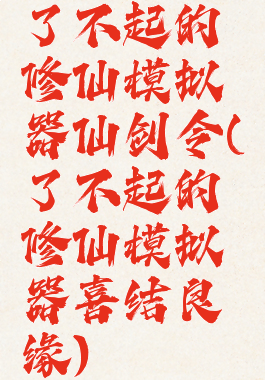 了不起的
修仙模拟
器仙剑令(
了不起的
修仙模拟
器喜结良
缘)